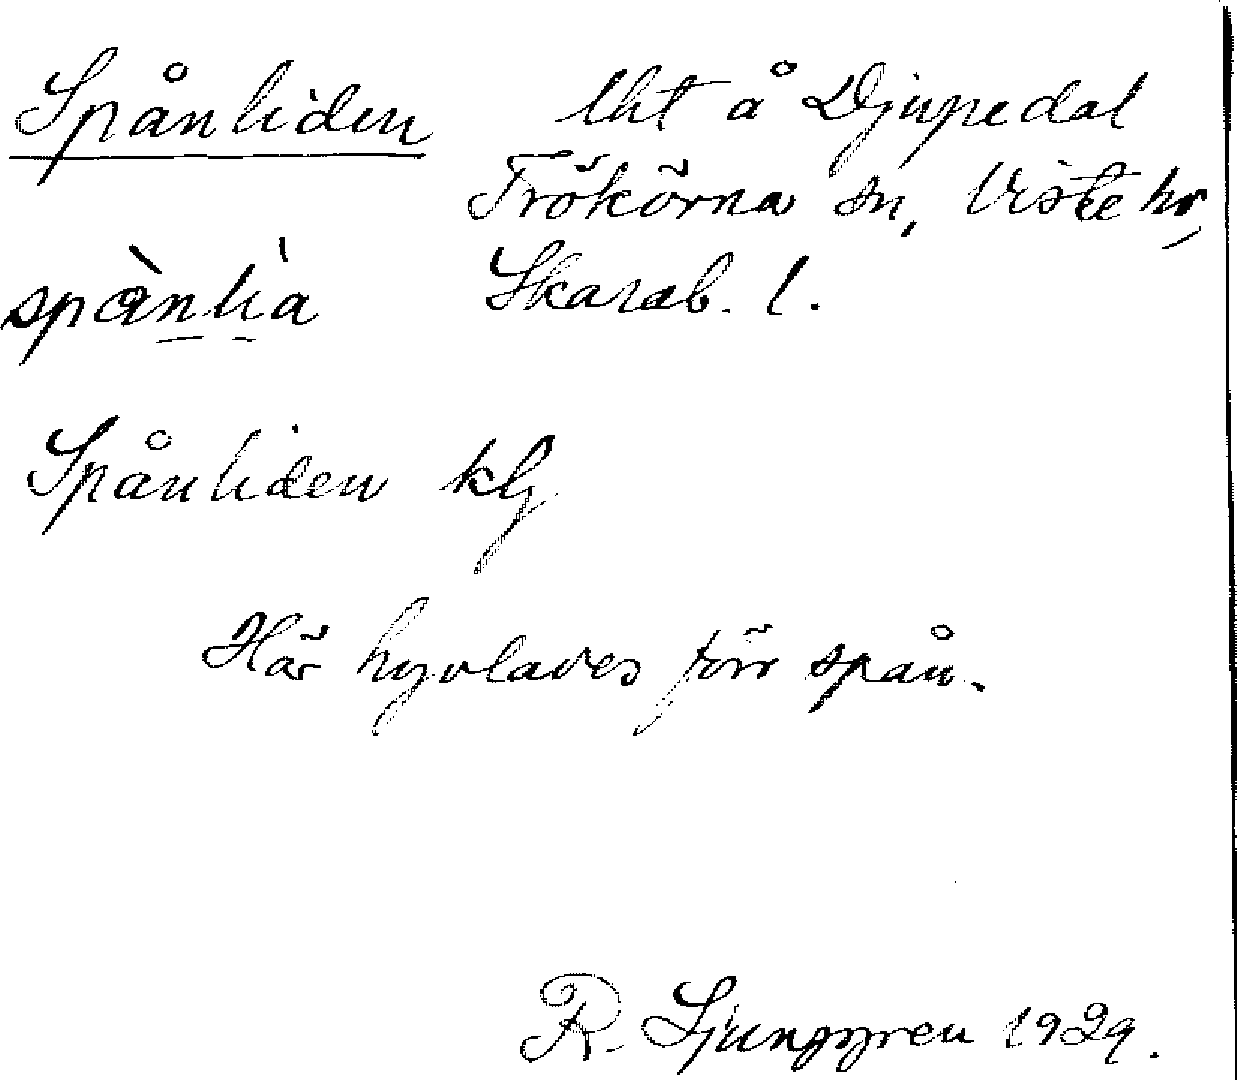 Spånliden lht å Djupedal
Trökörna sn, Viste hr,
spånlìa Skarab. l.
Spånliden klg
Här hyvlades förr spån.
R. Ljunggren 1929.